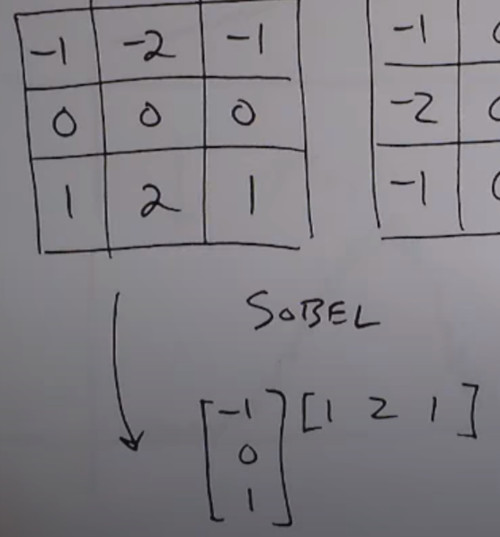 -1 -2 -1
0 0 0
1 2 1
-1 0
-2 0
-1 0
SOBEL
[-1 0 1] [1 2 1]